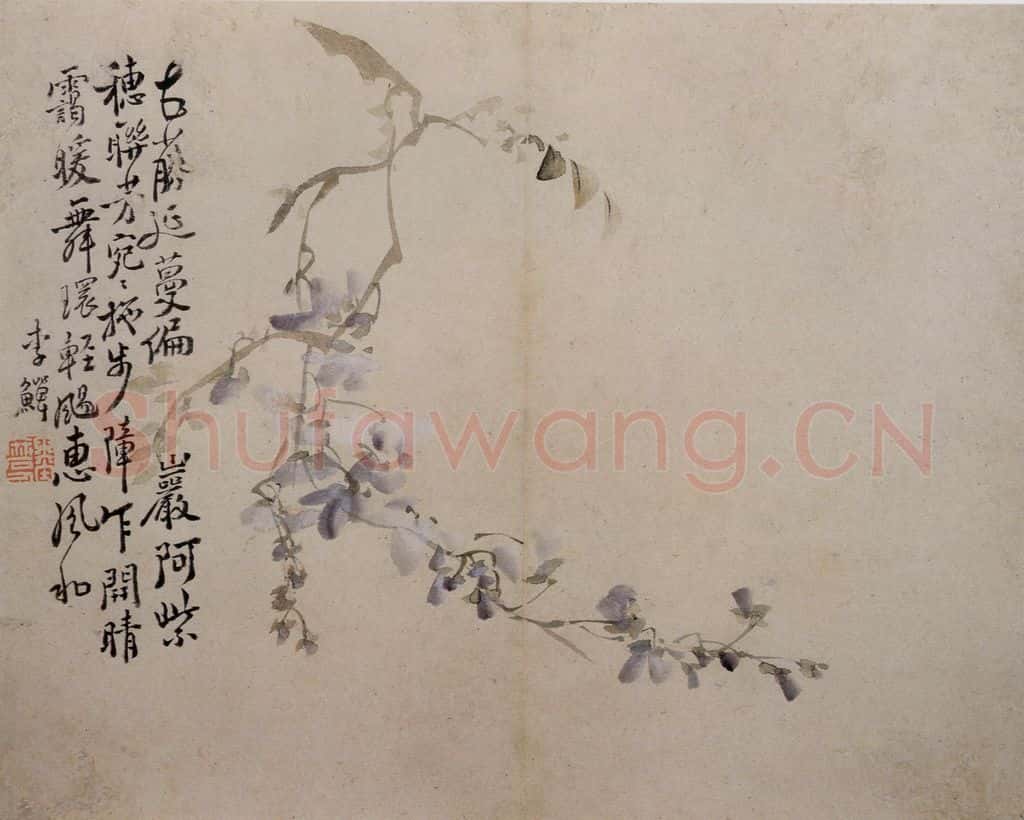 古藤延蔓偏巖阿紫
穗聯芳宛宛拖步障乍開晴
靄暖舞環輕颺惠風和
李鱓
Shufawang.CN